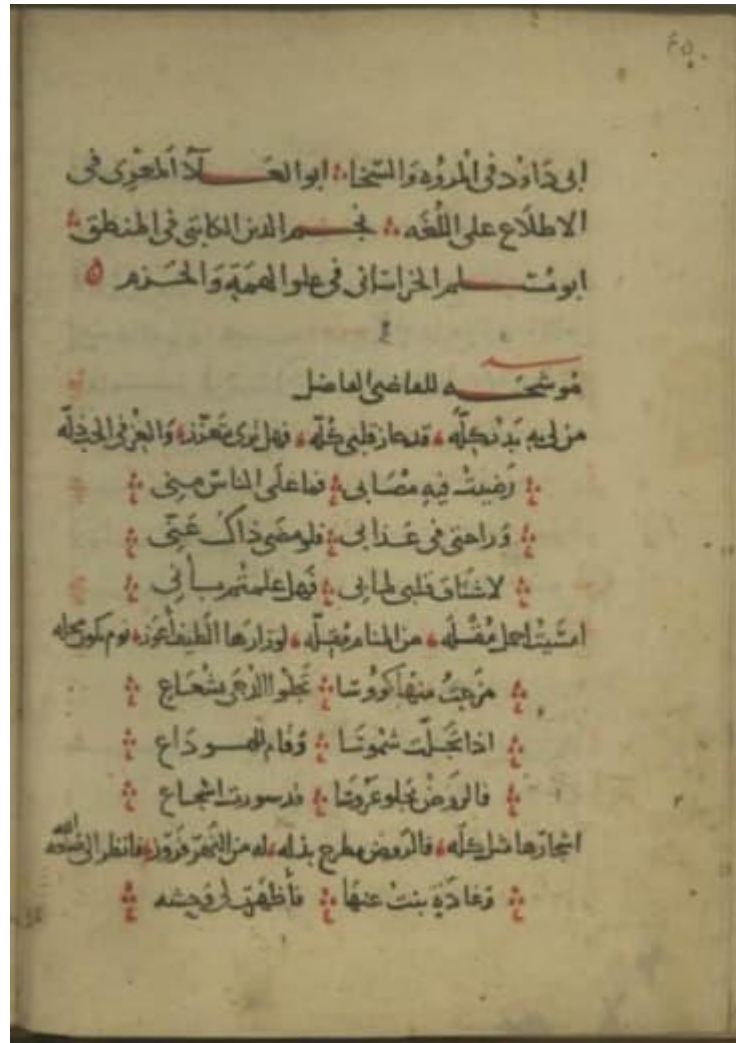 ٤٥
ابى دَاوُد فى المروّه وَالسّخا ابو العَلآء المعَرّى فى
الاطلّاع على اللّغه نجم الدين الكاتبى فى المنطق
ابو مُسلم الخراسانى فى علو الهمّة وَالحَزم
مُوشحَه للقاضى الفاضل
من لى به بَدْر كِلّه قد حاز قلبى كُلّه فهل ترى متعزز وَالعِز فى الحب ذلّه
رَضيتُ فيهِ مصَابى فما علَى الناس مِنى
وَراحتى فى عَذابى فلو مضَى ذاكَ عَنّى
لاشتاق قلبى لما بى فهَل علمتُم بأنى
امسَيتُ احمل مُقْلَه من المنام مُقِلّه لو زارَها الطيف أعوز نوم يكون محله
مزجتُ منهَا كوؤسًا تجلُوا الدّجَى بشعَاع
اذا تجَلّت شموسًا وَقام للهو دَاع
فالروَض يجلو عَروسًا
اشجارها فالرَوض مطرح بذله له من الزهر فانظر الى
وَغادَةٍ بنتُ عنهَا فأظهَرَت لى وَحشه